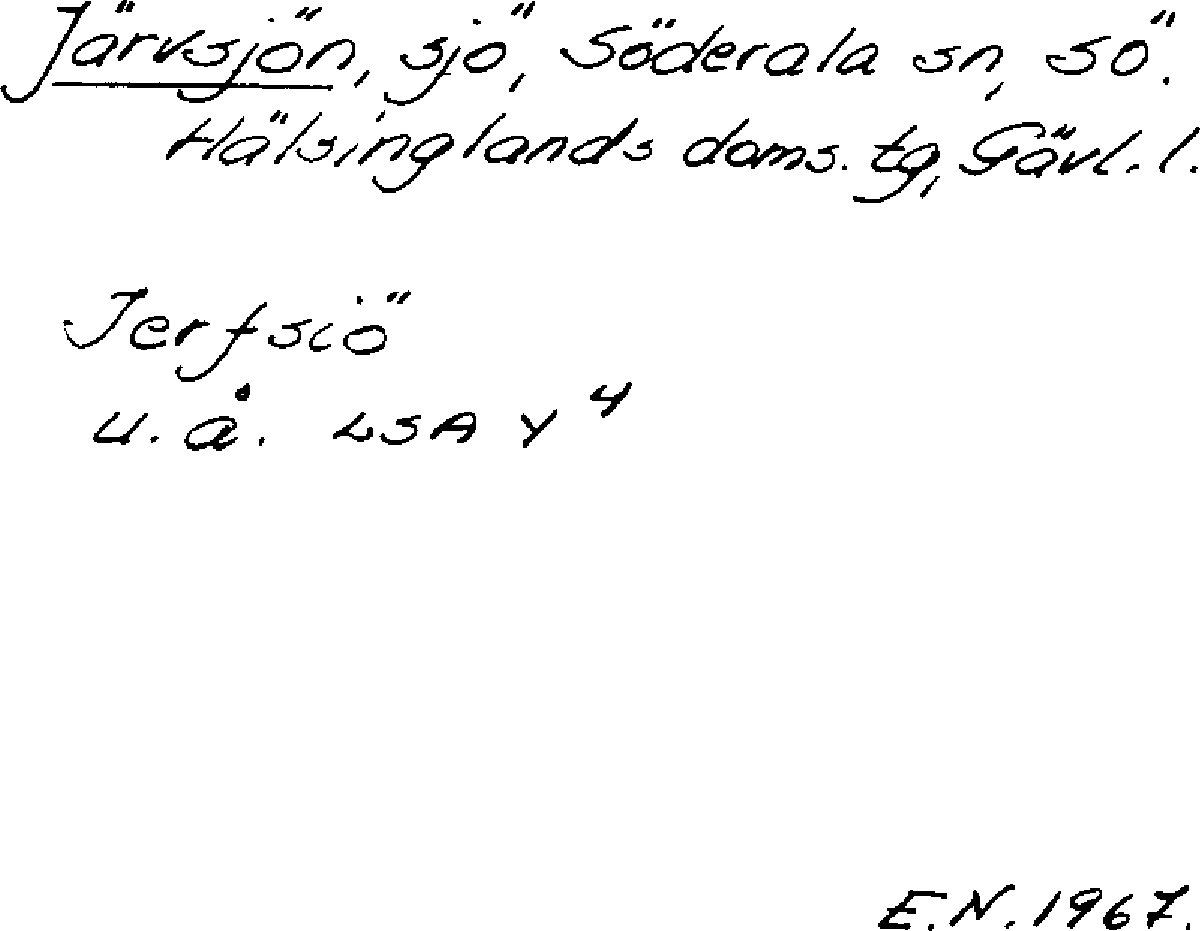 Järvsjön, sjö, Söderala sn, sö.
Hälsinglands doms. tg, Gävl. l.
Jerfsiö
u. å. LSA Y⁴
E.N. 1967.